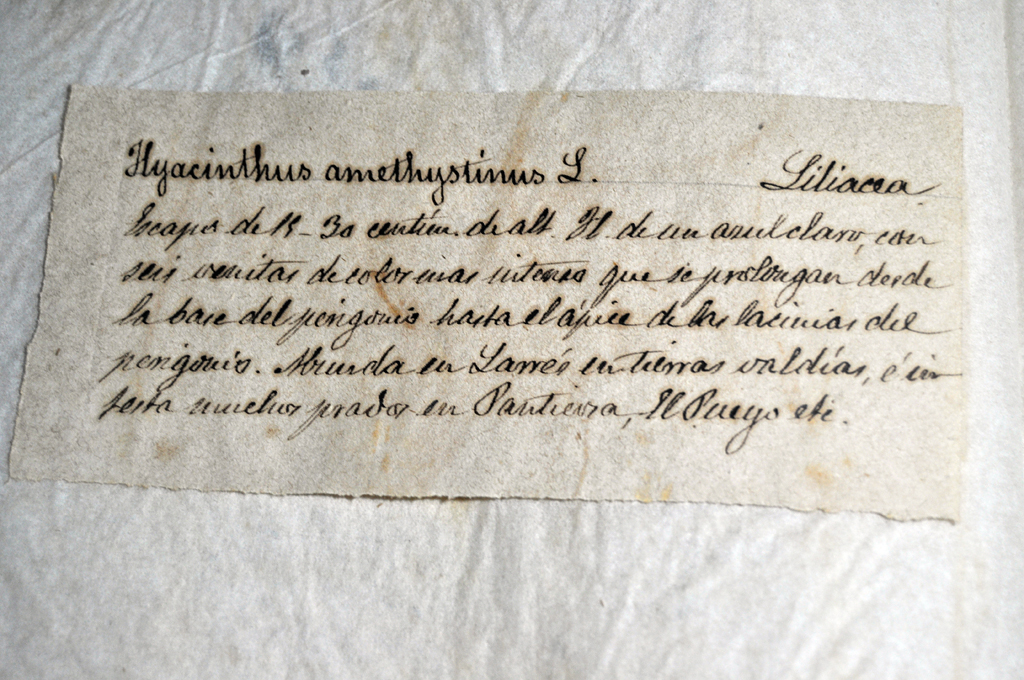 Hyacinthus amethystinus L. Liliacea
Escapo de 15-30 centím. de alt. Fl. de un azul claro, con
seis venitas de color mas intenso que se prolongan desde
la base del perigonio hasta el ápice de las lacinias del
perigonio. Abunda en Larrés en tierras valdías, é in
festa muchos prados en Panticosa, El Pueyo etc.